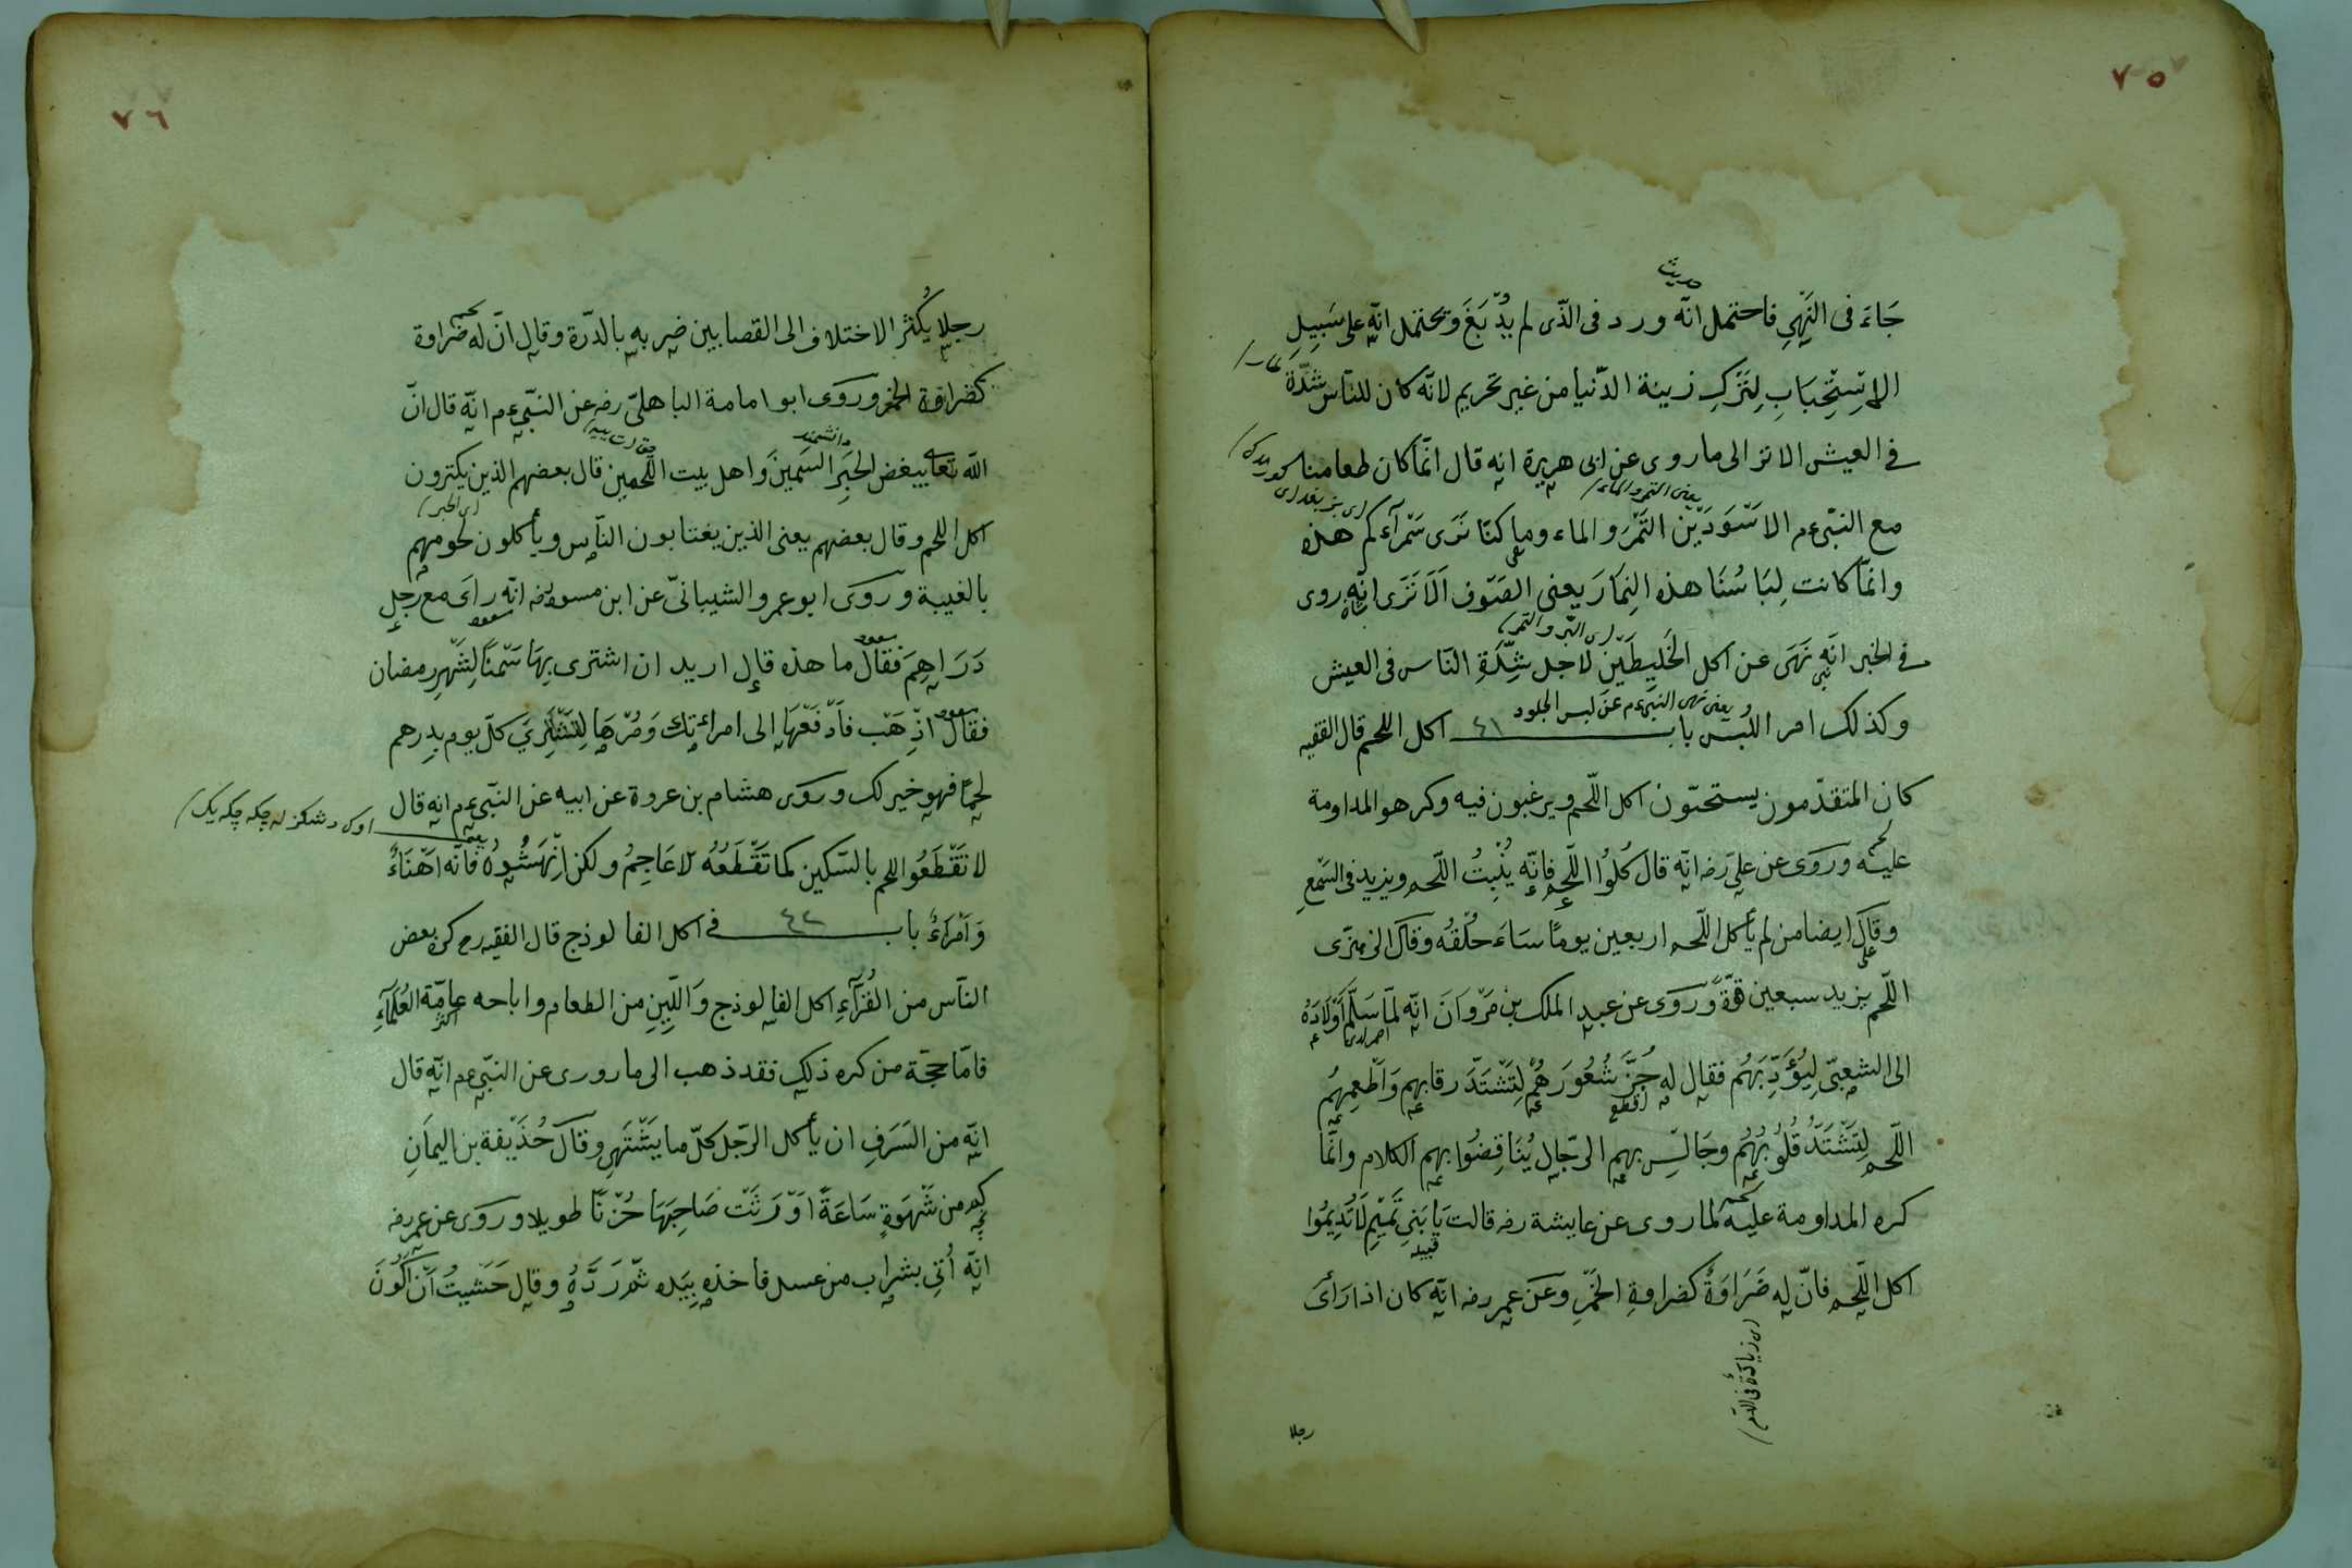 ٧٥
حديث
جَاءَ فى النَّهْىِ فاحتمل انّه ورد فى الذّى لم يُدْبَغَ ويحتمل انّه على سَبِيلِ
الاِسْتِحْبَابِ لِتَرْكِ زينة الدّنيا من غير تحريم لانّه كان للنّاس شِدَّة
فى العيش الا تر الى ما روى عن ابى هريرة انه قال انّما كان طعامنا
يعنى التمر والماء
مع النبىّ عم الاَسْوَدَيْن التَّمْرَ والماء وما كنّا نَرَى سَمْرَآءَكم هذه
وانّما كانت لِبَاسُنَا هذه النِمَارَ يعنى الصّوف اَلاَ تَرَى انّه روى
اى البُر والتمر
فى الخبر انّه نَهَى عن اكل الخَلِيطَيْنِ لاجل شِدَّةِ النّاس فى العيش
يعنى نهى النبىّ عم عن لبس الجلود
وكذلك امر اللبس باب ٤١ اكل اللحم قال الفقيه
كان المتقدّمون يستحبّون اكل اللّحم ويرغبون فيه وكرهو المداومة
لحم
عليه وروى عن علىّ رضه انّه قال كُلُوا اللّحم فانّه يُنْبِتُ اللّحم ويزيد فى السَّمْعِ
وقال ايضا من لم يأكل اللّحم اربعين يومًا سَاءَ خُلْقُه وقال الزهرى
على
اللّحم يزيد سبعين قوّةً وروى عن عبد الملك بن مَرْوَانَ انّه لمّا سَلَّمَ اَوْلاَدَهُ
الى الشعبىّ لِيُؤَدِّبَهُم فقال له جُزَّ شُعُورَهُمْ لِتَشْتَدَّ رقابهم وَاَطْعِمْهُم
اقطع
اللّحم لِتَشْتَدَّ قُلُوبُهُم وجَالِسْ بهم الرّجال يُنَاقِضُوا بهم الكلام وانّما
لحم
كره المداومة عليه لما روى عن عايشة رضه قالت يَا بَنِى تَمِيْمٍ لَا تُدِيمُوا
قبيله
اكل اللّحم فانّ له ضَرَاوَةً كضراوةِ الخَمْرِ وعَنْ عمر رضه انّه كان اذا رَأَى
رجلا
٧٦
رجلا يُكْثر الاختلاف الى القصابين ضربه بالدّرة وقال انّ له ضراوة
كضراوة الخمر وروَى ابو امامة الباهلىّ رضه عن النبّى عم انّه قال انّ
دانشمند
الله تعالى يبغض الحَبْرَ السَمينَ واهل بيت اللّحمين قال بعضهم الذين يكثرون
اكل اللحم وقال بعضهم يعنى الذين يغتابون النّاس ويأكلون لحومهم
بالغيبة وروَى ابو عمرو الشيبانىّ عن ابن مسعود رضه انّه راَى مع رجل
مسعود
دَرَاهِمَ فقال ما هذه قال اريد ان اشترى بِهَا سَمْنًا لِشَهْرِ رمضان
مسعود
فقال اذْهَبْ فَادْفَعْهَا الى امراَتِك وَمُرْهَا لِتَشْتَرِيَ كلّ يوم بدِرهم
لحمًا فهو خير لك وروى هشام بن عروة عن ابيه عن النبّى عم انه قال
لا تَقْطَعُوا اللحم بالسّكين كما تَقْطَعُهُ الاعَاجِمُ ولكن اِنْهَشُوهُ فانّه اَهْنَاءُ
وَاَمْرَاءُ باب ٤٢ فى اكل الفالوذج قال الفقيه رح كره بعض
النّاس من القُرّآءِ اكل الفالوذج وَاللّيِنِ من الطعام واباحه عامّة العُلَمَآءِ
اكثر
فامّا حجّة من كره ذلك فقد ذهب الى ما رورى عن النبّى عم انّه قال
انّه من السَرَفِ ان يأكل الرّجل كلّ ما يَشْتَهِى وقال حُذَيْفة بن اليمَانِ
كم من شَهْوَةٍ سَاعَةً اَوْرَثَتْ صَاحِبَهَا حُزْنًا طويلا وروَى عن عمر رضه
انّه اُتِى بشراب من عسل فاخذه بِيَده ثمّ رَدَّهُ وقال خَشيتُ اَنْ اَكُونَ